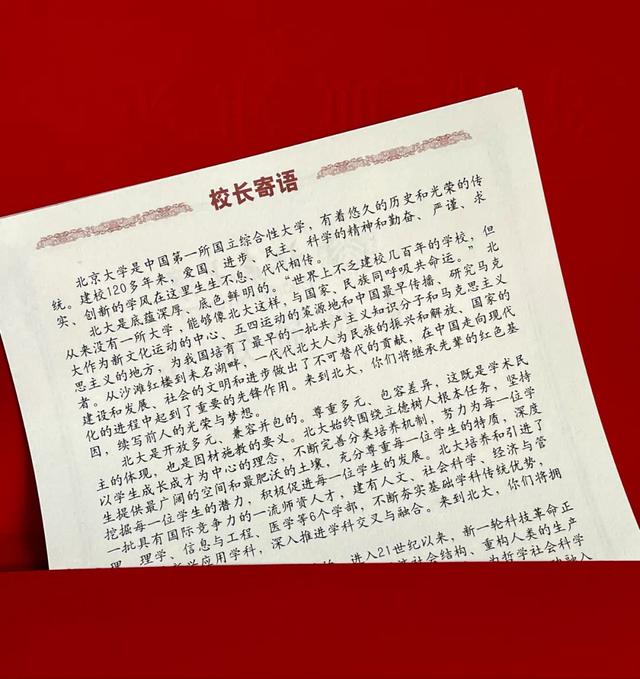 校长寄语
北京大学是中国第一所国立综合性大学，有着悠久的历史和光荣的传
统。建校120多年来，爱国、进步、民主、科学的精神和勤奋、严谨、求
实、创新的学风在这里生生不息、代代相传。
北大是底蕴深厚、底色鲜明的。“世界上不乏建校几百年的学校，但
从来没有一所大学，能够像北大这样，与国家、民族同呼吸共命运。”北
大作为新文化运动的中心、五四运动的策源地和中国最早传播、研究马克
思主义的地方，为我国培育了最早的一批共产主义知识分子和马克思主义
者。从沙滩红楼到未名湖畔，一代代北大人为民族的振兴和解放、国家的
建设和发展、社会的文明和进步做出了不可替代的贡献，在中国走向现代
化的进程中起到了重要的先锋作用。来到北大，你们将继承先辈的红色基
因，续写前人的光荣与梦想。
北大是开放多元、兼容并包的。尊重多元、包容差异，这既是学术民
主的体现，也是因材施教的要义。北大始终围绕立德树人根本任务，坚持
以学生成长成才为中心的理念，不断完善分类培养机制，努力为每一位学
生提供最广阔的空间和最肥沃的土壤，充分尊重每一位学生的特质，深度
挖掘每一位学生的潜力，积极促进每一位学生的发展。北大培养和引进了
一批具有国际竞争力的一流师资人才，建有人文、社会科学、经济与管
理、理学、信息与工程、医学等6个学部，不断夯实基础学科传统优势，
应用学科，深入推进学科交叉与融合。来到北大，你们将拥
进入21世纪以来，新一轮科技革命正
社会结构、重构人类的生产
为哲学社会科学